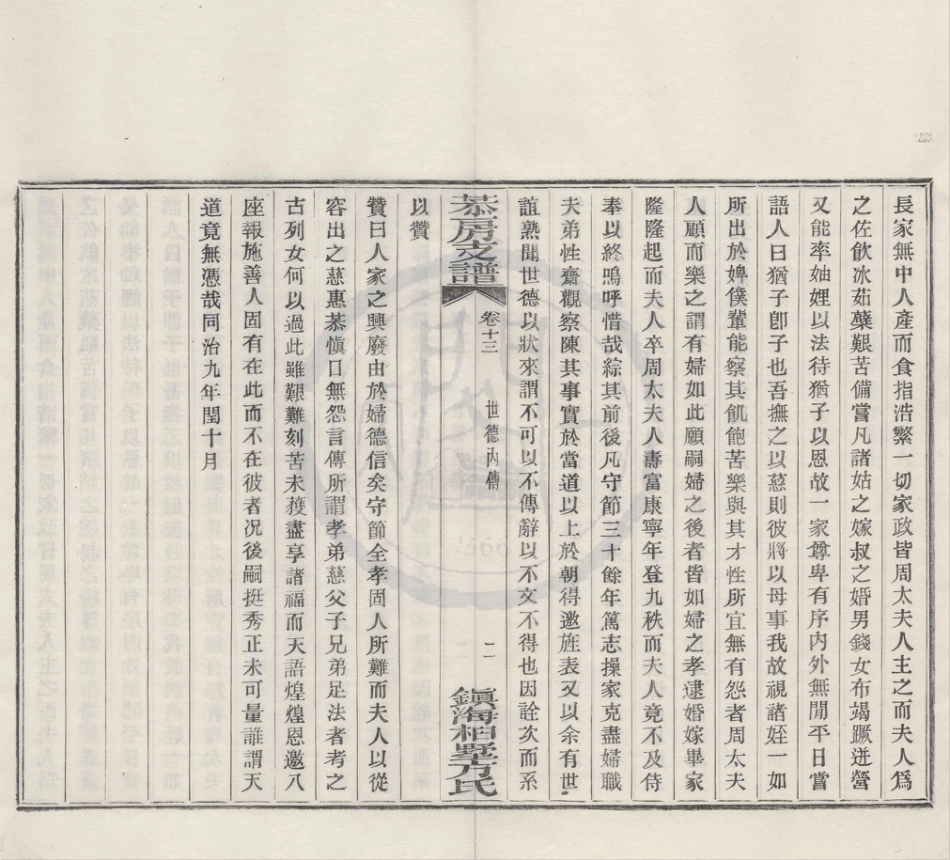 長家無中人產而食指浩繁一切家政皆周太夫人主之而夫人爲
之佐飮冰茹蘗艱苦備嘗凡諸姑之嫁叔之婚男錢女布竭蹶迸營
又能率妯娌以法待猶子以恩故一家尊卑有序內外無閒平日嘗
語人曰猶子卽子也吾撫之以慈則彼將以母事我故視諸姪一如
所出於婢僕輩能察其飢飽苦樂與其才性所宜無有怨者周太夫
人顧而樂之謂有婦如此願嗣婦之後者皆如婦之孝逮婚嫁畢家
隆隆起而夫人卒周太夫人壽富康寧年登九秩而夫人竟不及侍
奉以終嗚呼惜哉綜其前後凡守節三十餘年篤志操家克盡婦職
夫弟性齋觀察陳其事實於當道以上於朝得邀旌表又以余有世
誼熟聞世德以狀來謂不可以不傳辭以不文不得也因詮次而系
以贊
恭房支譜
卷十三
世德內傳
二
鎭海柏墅方氏
贊曰人家之興廢由於婦德信矣守節全孝固人所難而夫人以從
容出之慈惠恭愼口無怨言傳所謂孝弟慈父子兄弟足法者考之
古列女何以過此雖艱難刻苦未獲盡享諸福而天語煌煌恩邀八
座報施善人固有在此而不在彼者况後嗣挺秀正未可量誰謂天
道竟無憑哉同治九年閏十月